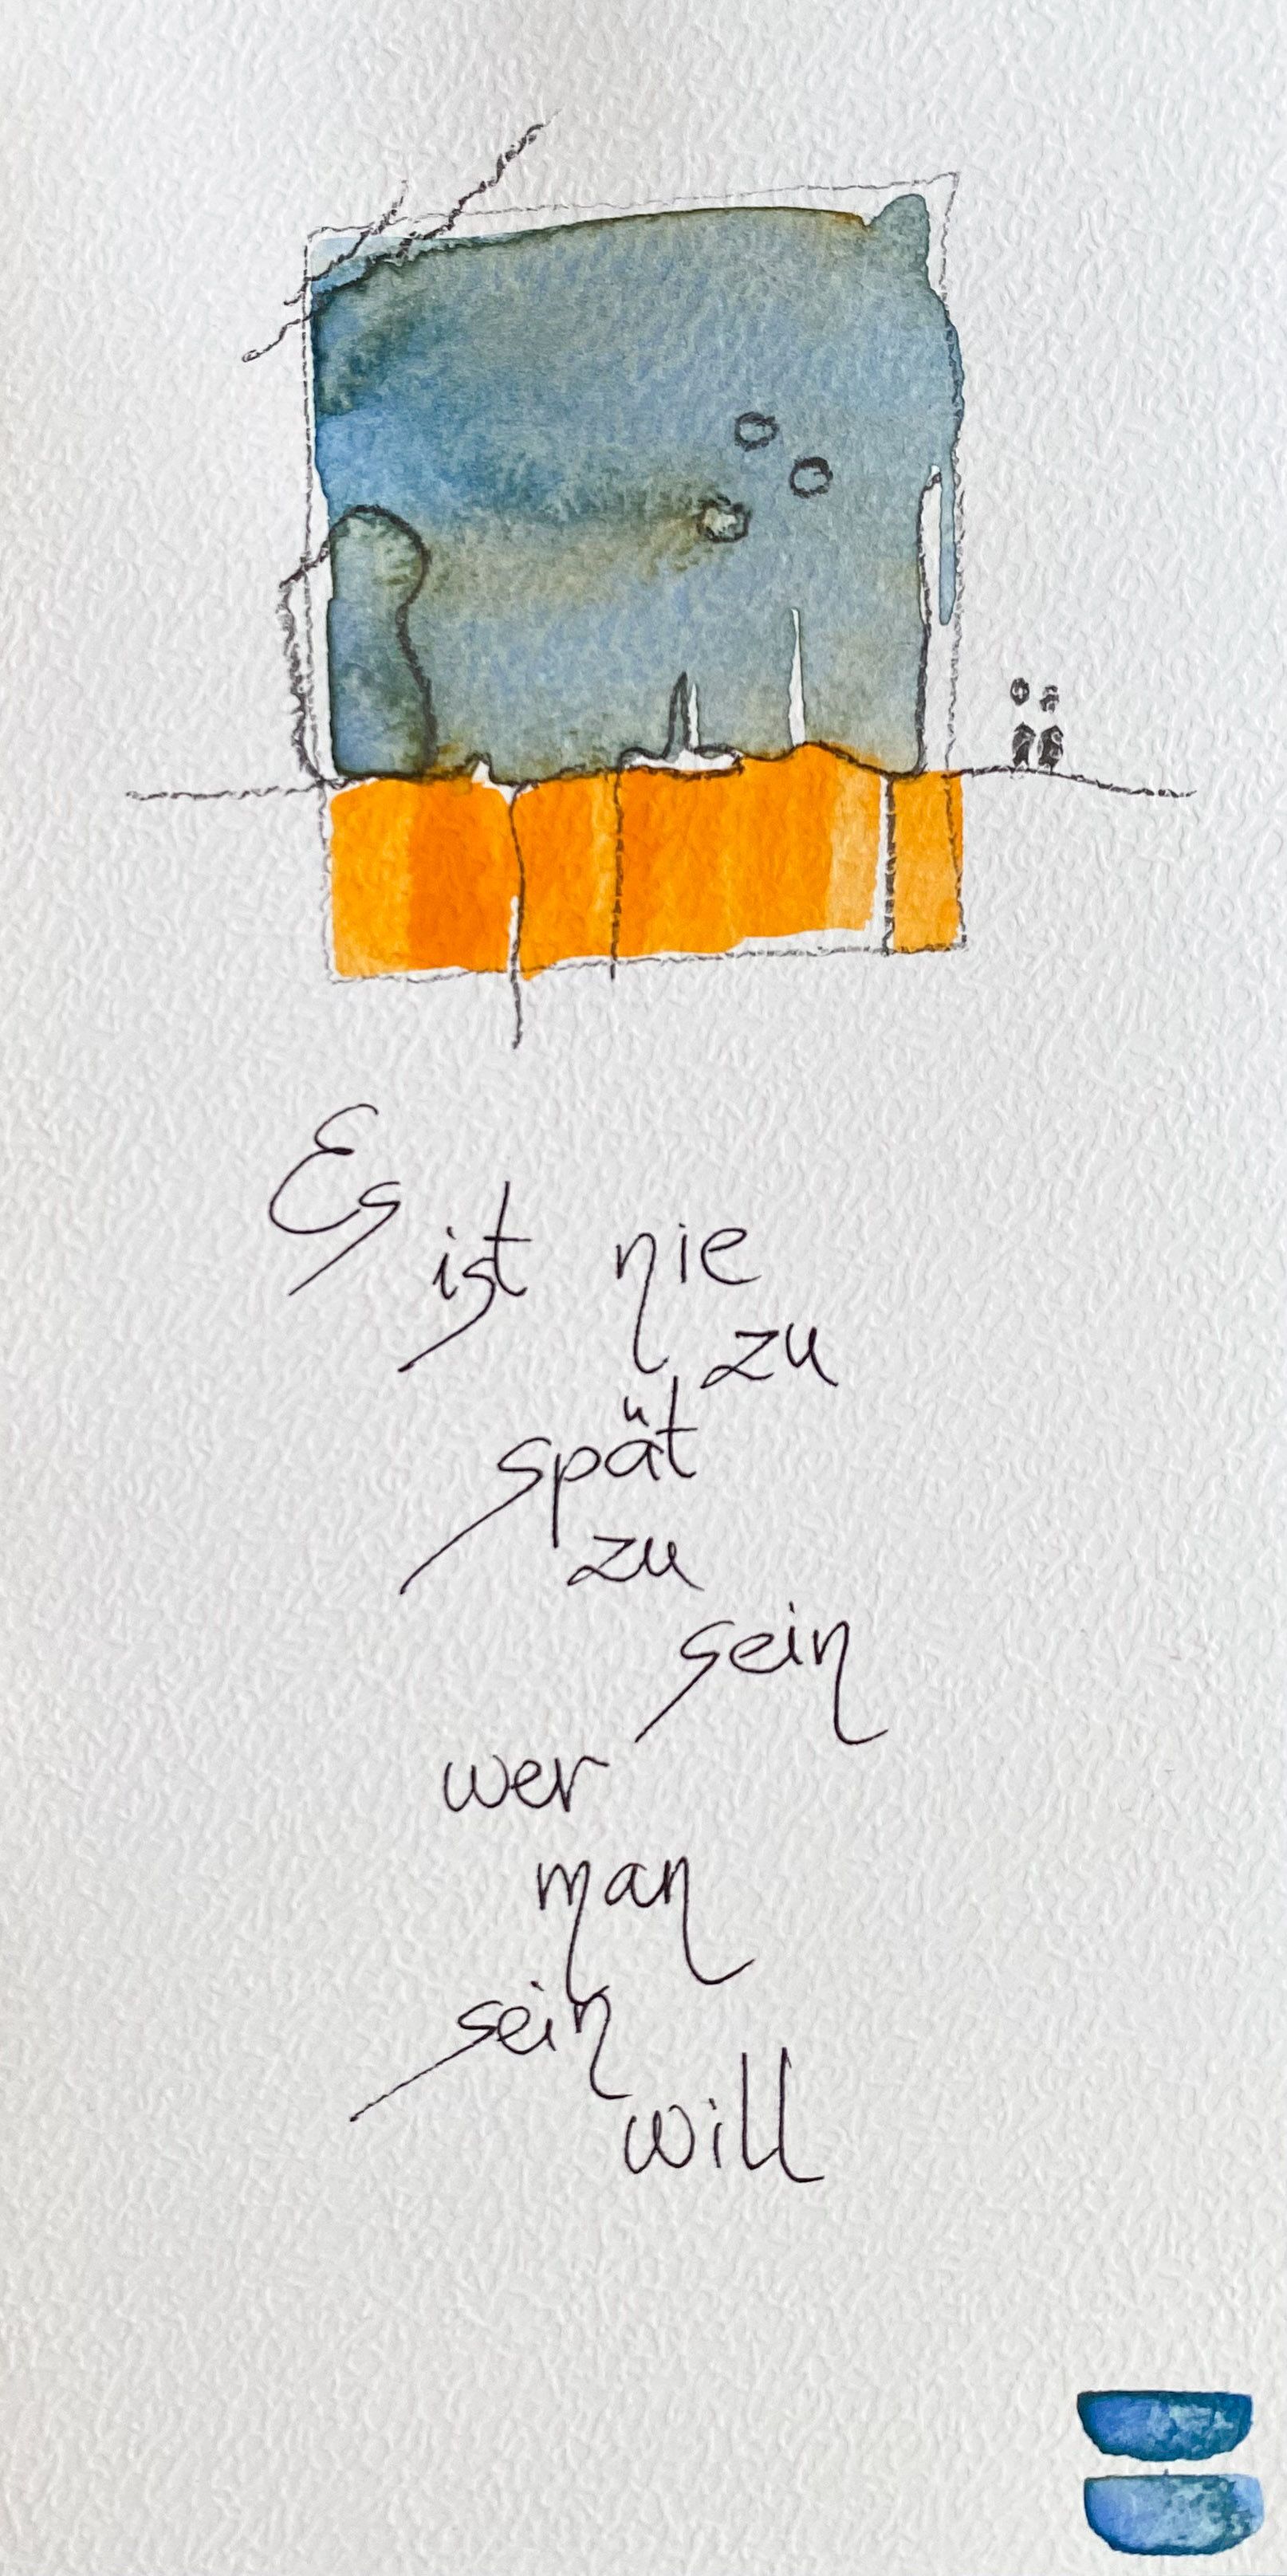 Es
ist nie
zu
spät
zu
sein
wer
man
sein
will